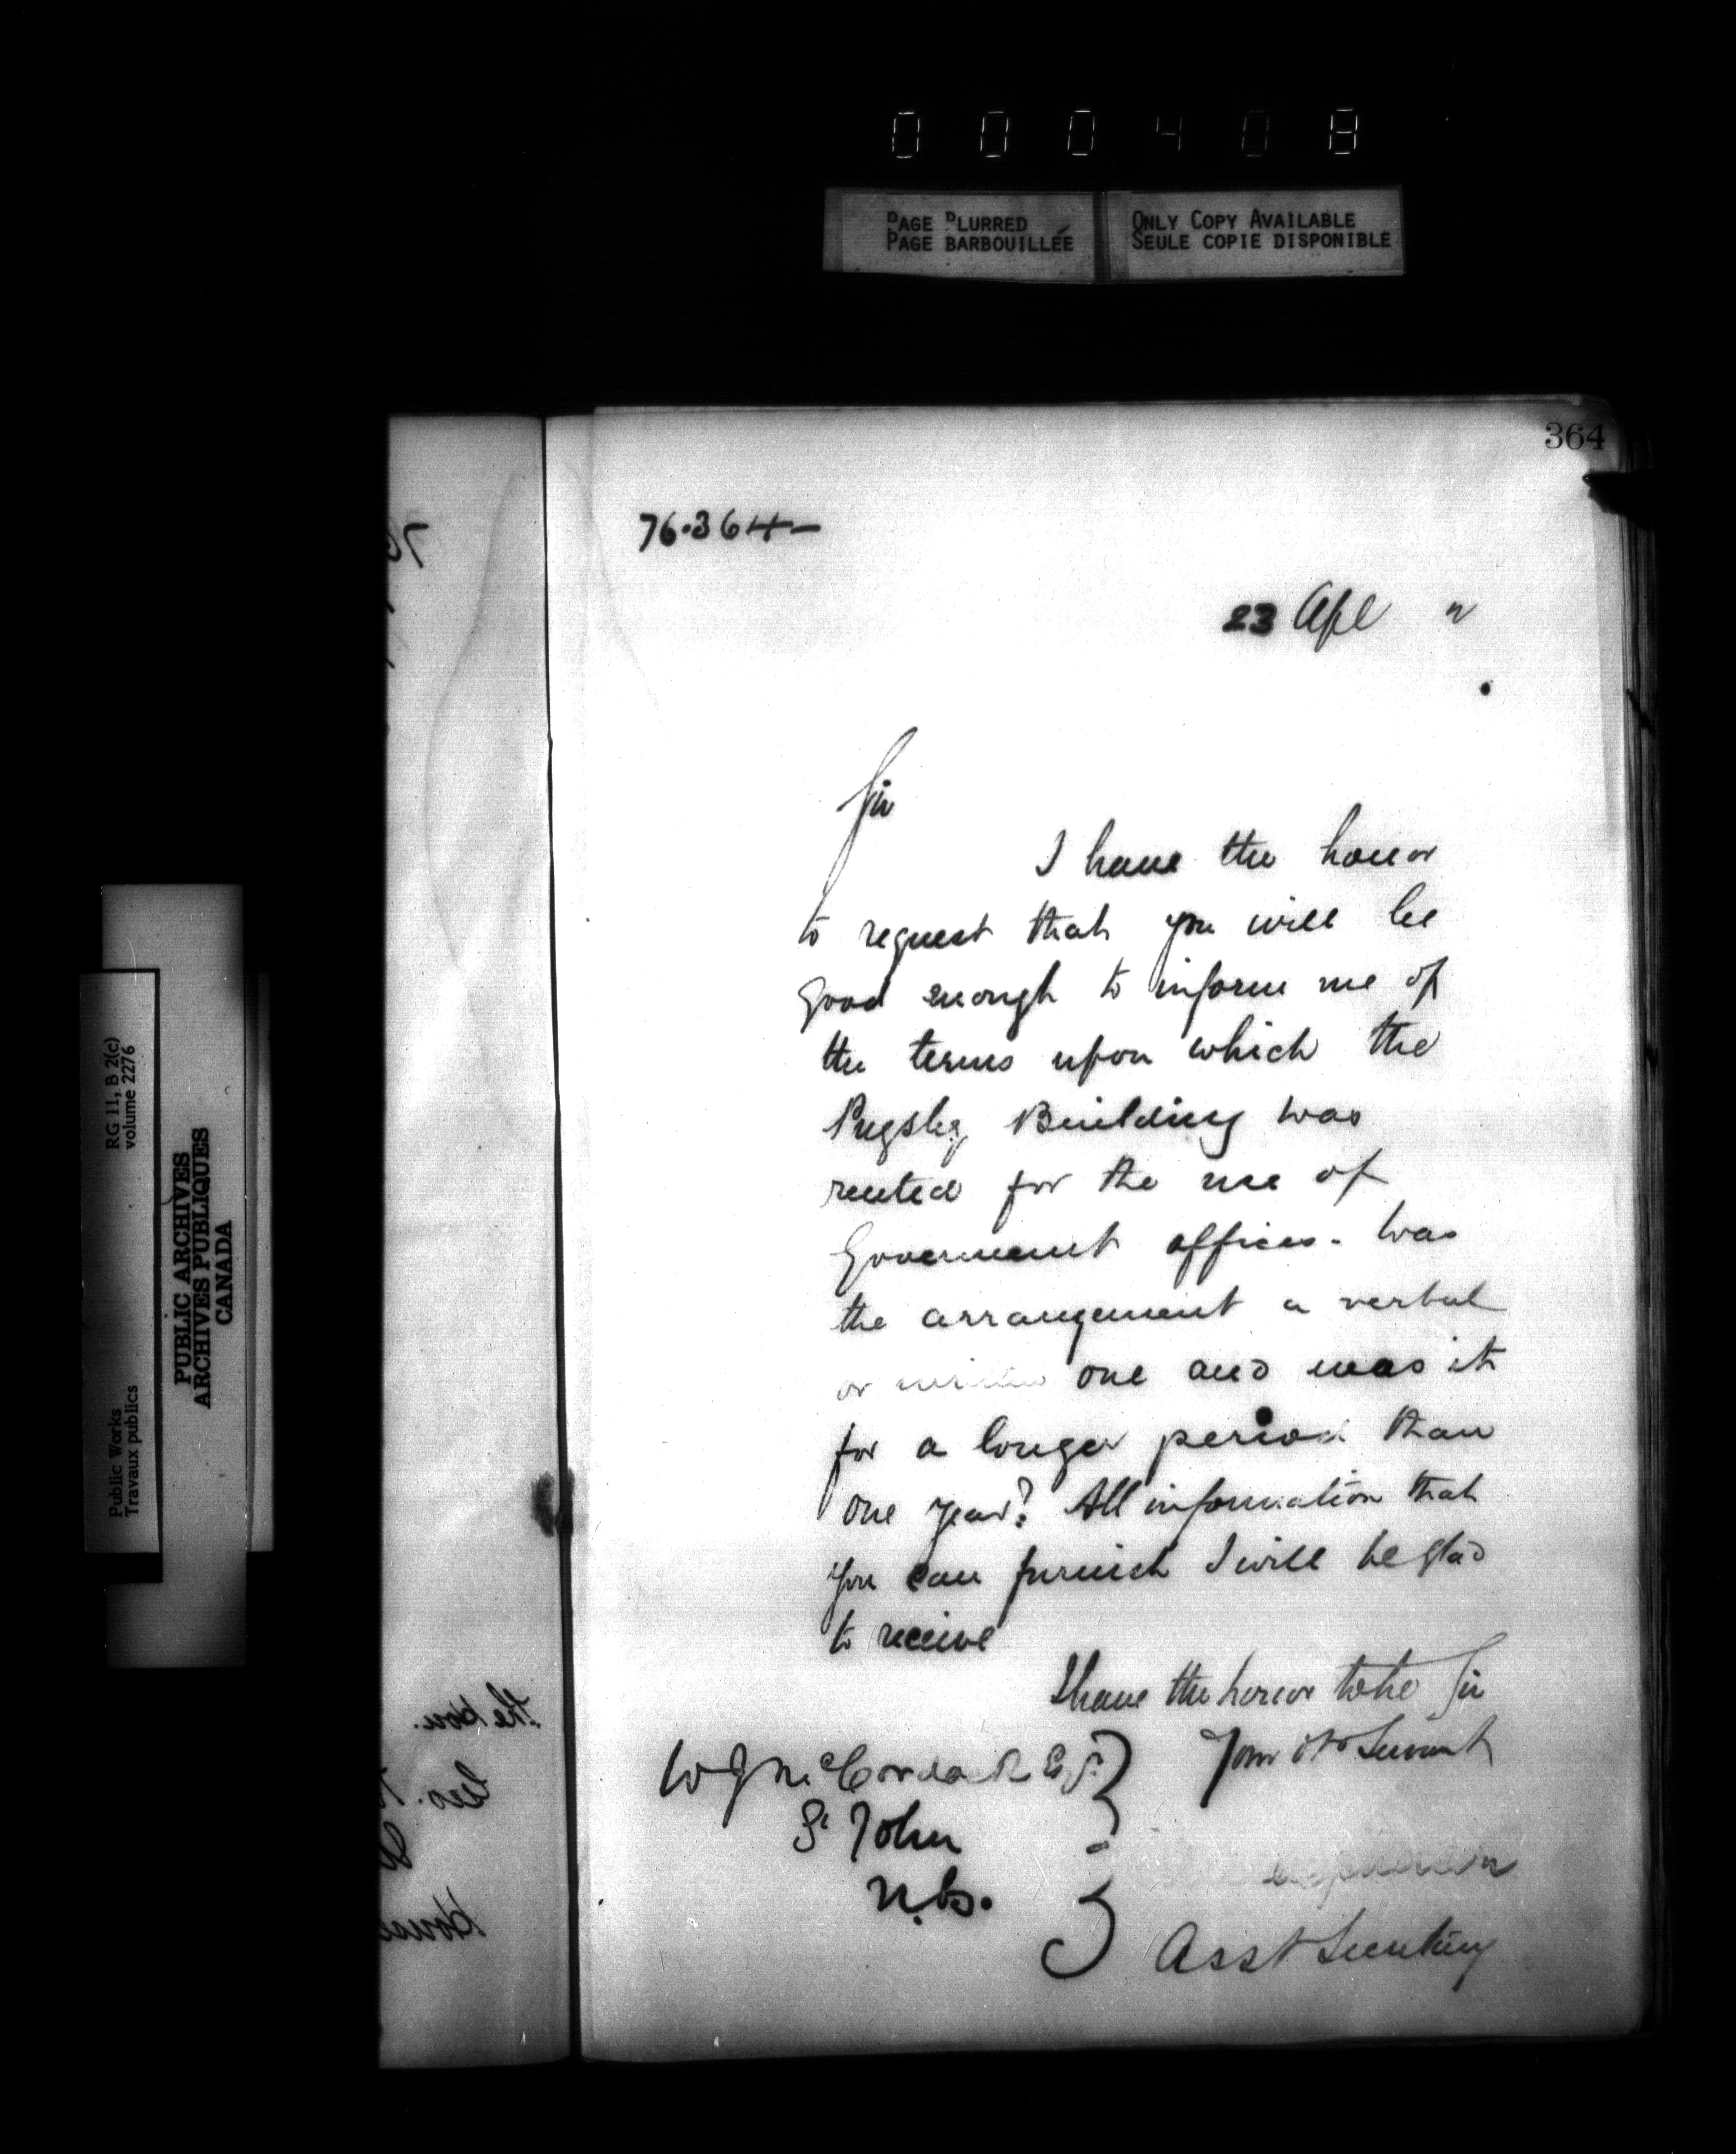 000408
PAGE BLURRED
PAGE BARBOUILLÉE
ONLY COPY AVAILABLE
SEULE COPIE DISPONIBLE
364
76.364
23 Apl "
Sir
I have the honor
to request that you will be
good enough to inform me of
the terms upon which the
Pugsley Building was
rented for the use of
Government offices. Was
the arrangement a verbal
or written one and was it
for a longer period than
one year? All information that
you can furnish I will be glad
to receive
I have the honor to be Sir
Your Ob Servant
W J McCordock Esqr
St John
N.B.
Asst Secretary
RG 11, B 2(c)
volume 2276
Public Works
Travaux publics
PUBLIC ARCHIVES
ARCHIVES PUBLIQUES
CANADA
the Hon.
Geo.
House